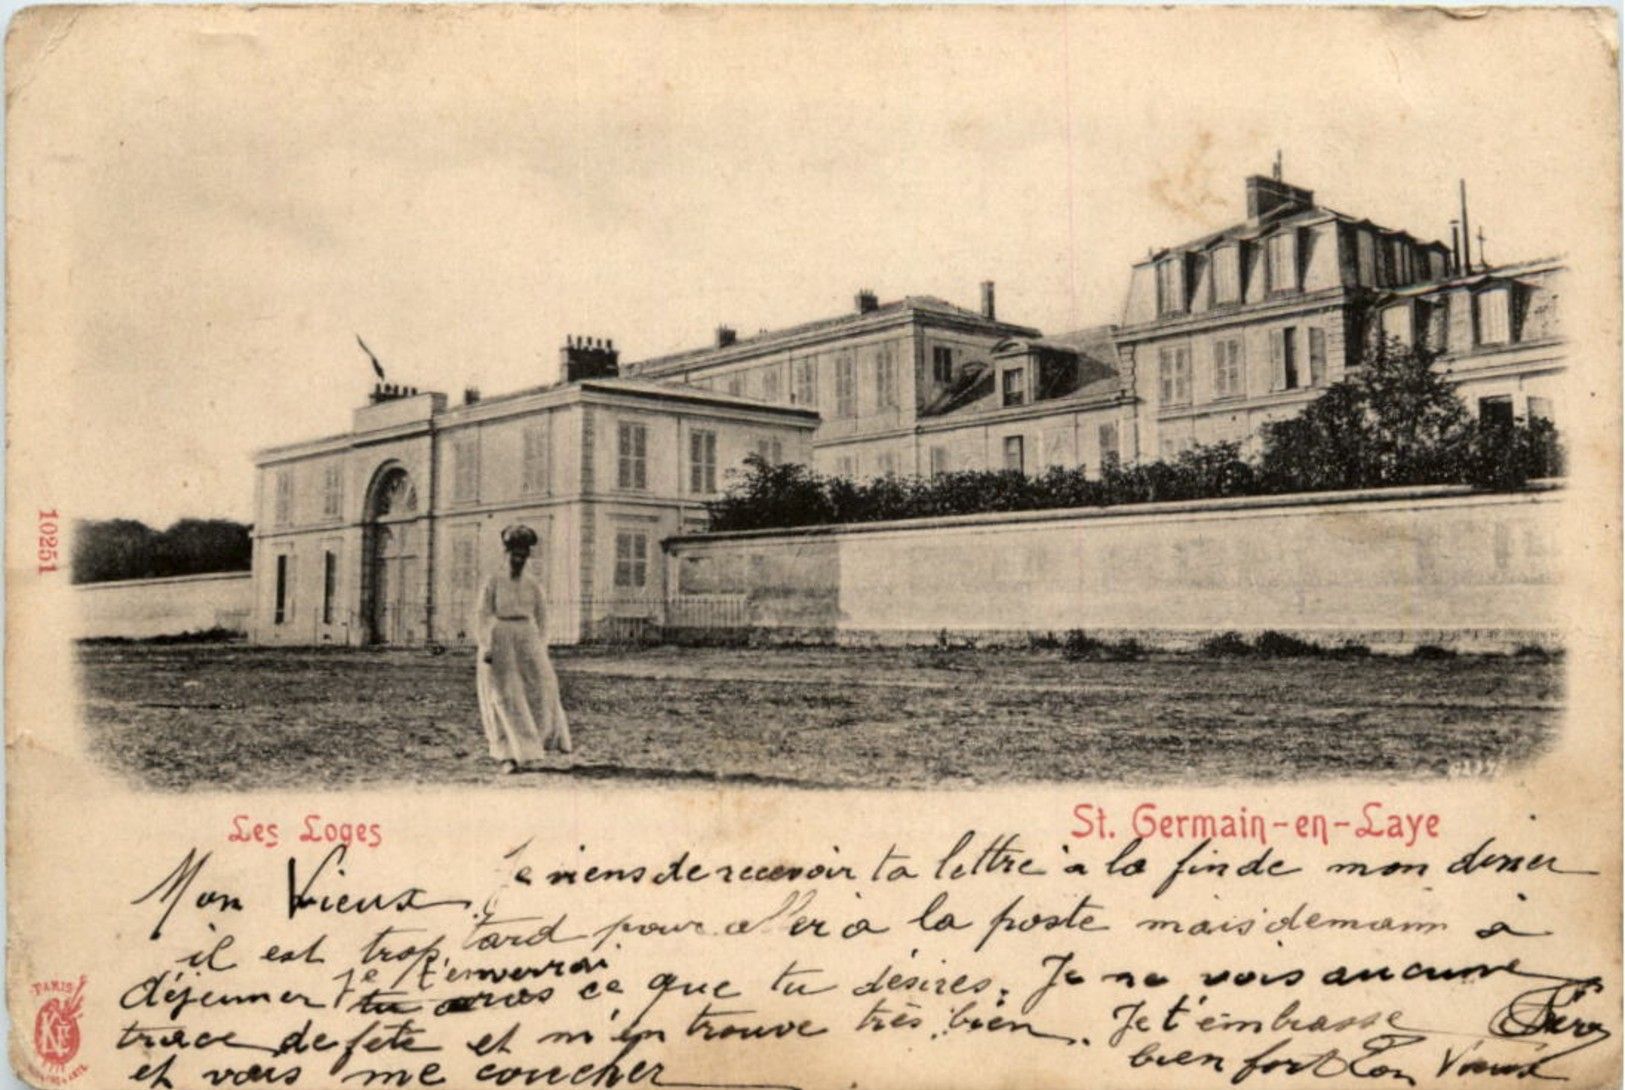 10251
Les Loges
St. Germain-en-Laye
Mon Vieux. Je viens de recevoir ta lettre à la fin de mon diner
il est trop tard pour aller à la poste mais demain à
déjeuner je t'enverrai ce que tu désires. Je ne vois aucune
trace de fete et m'en trouve très bien. Je t'embrasse
et vais me coucher bien fort Ton Vieux
PARIS